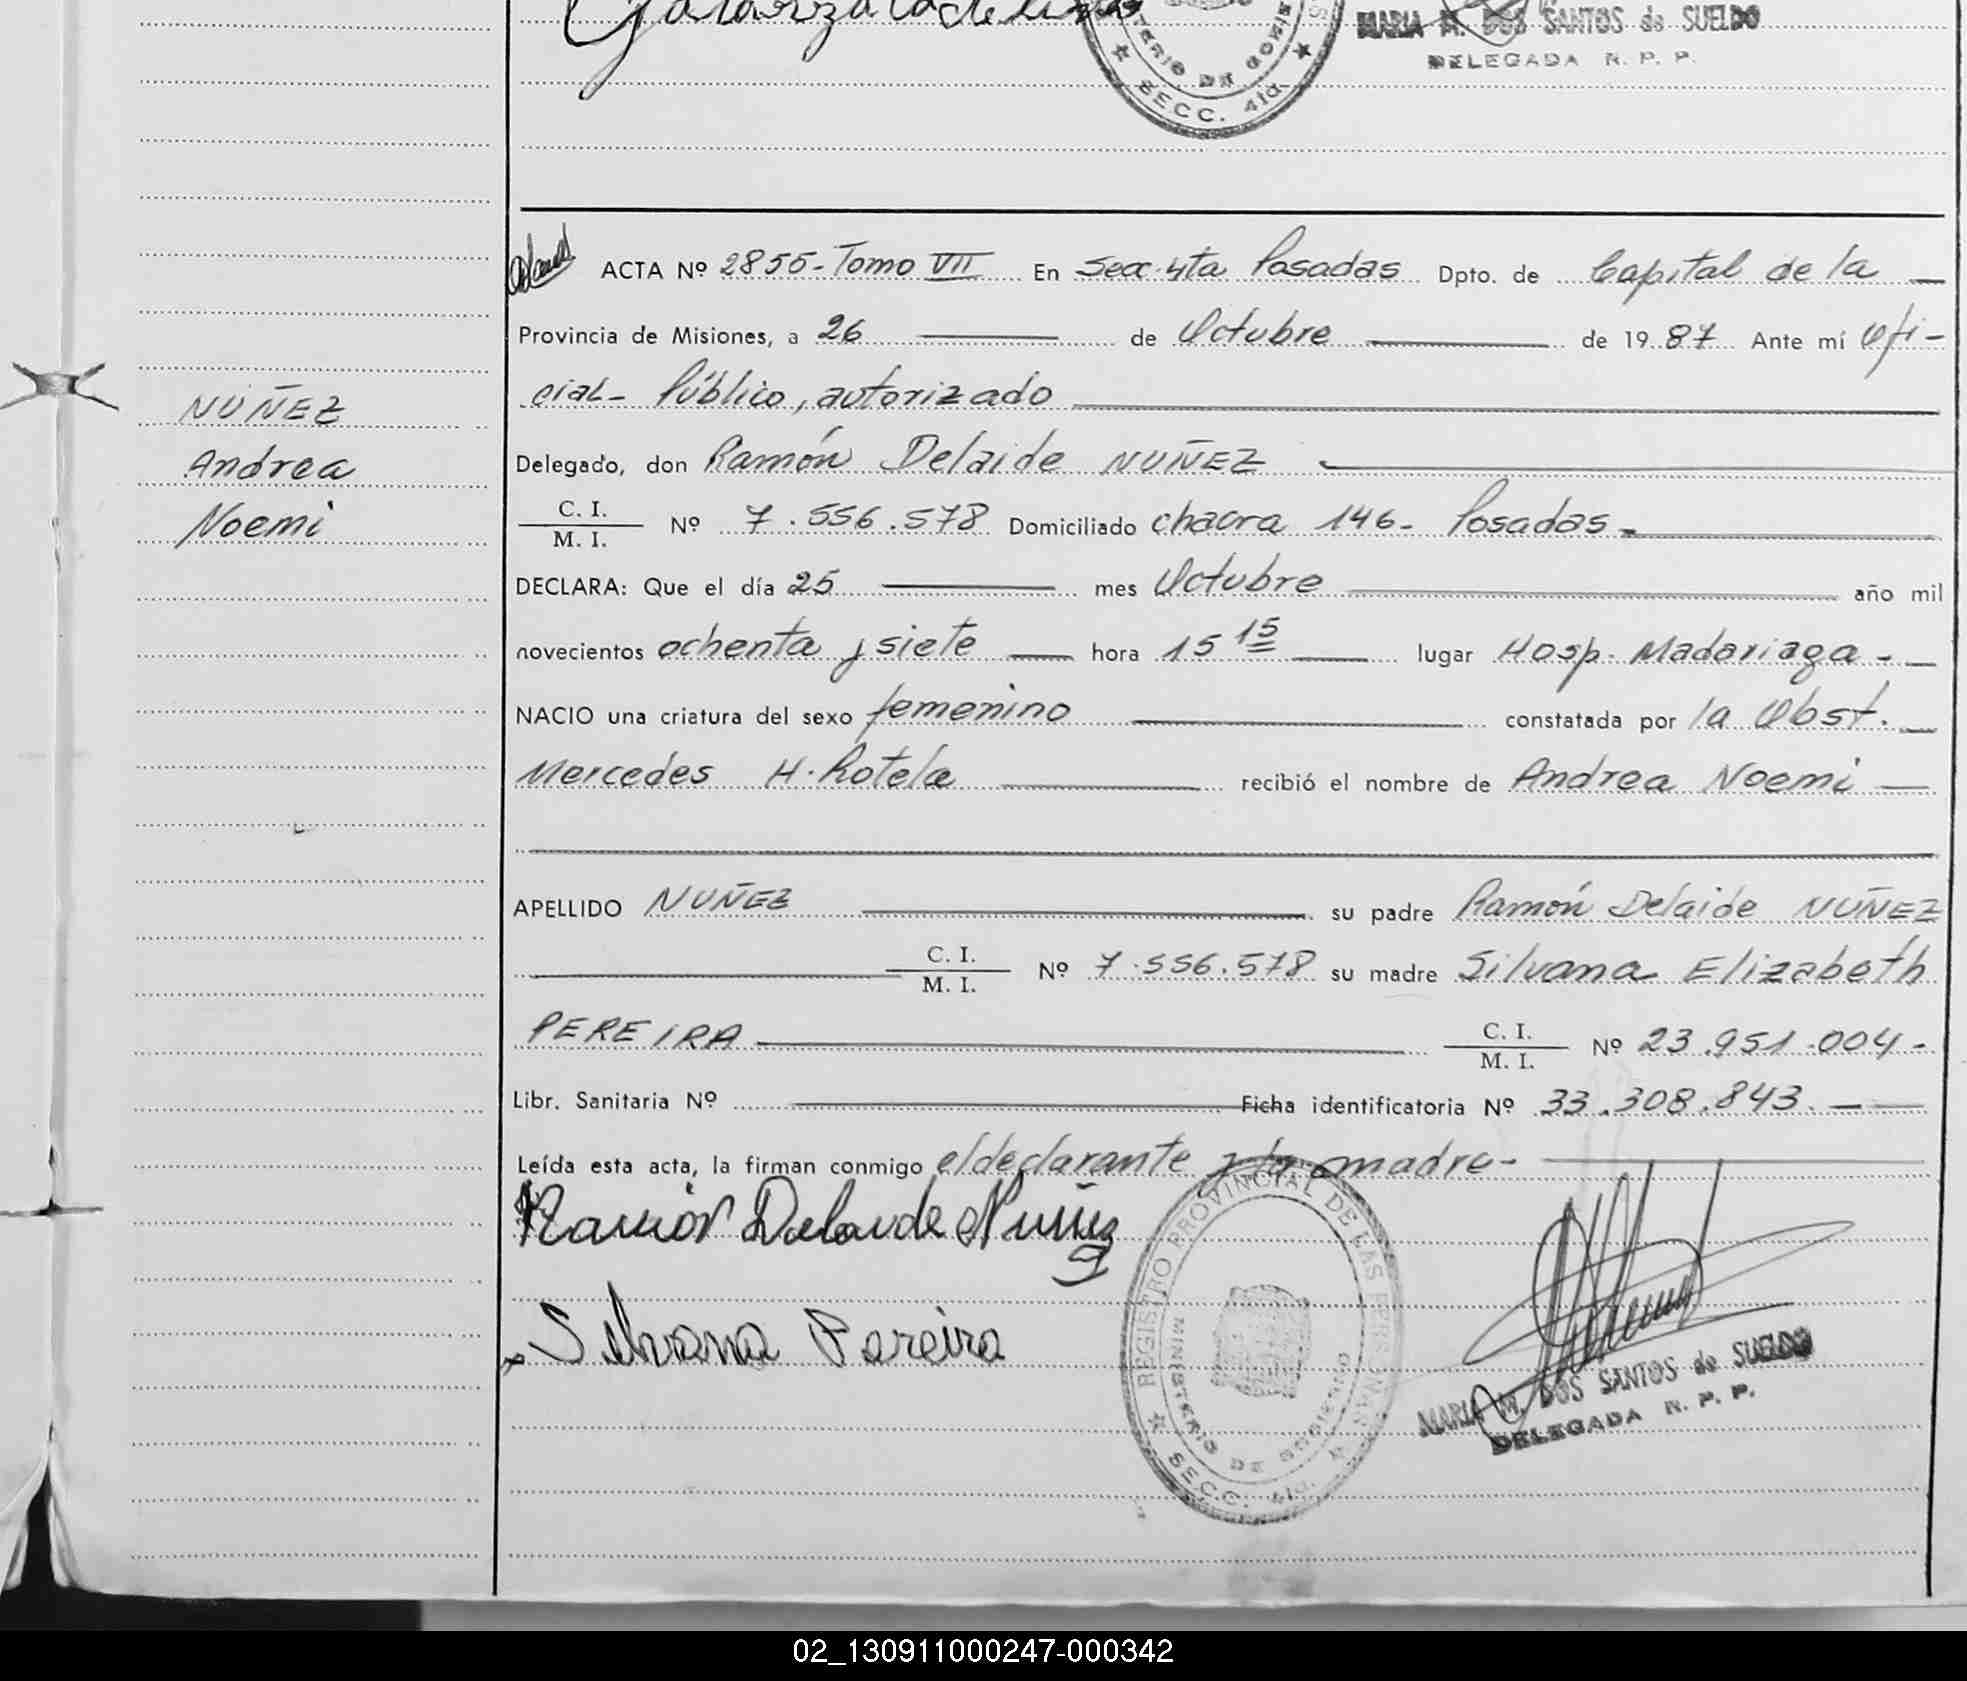 MARIA M. DOS SANTOS de SUELDO
DELEGADA N. P. P.
SECC. 4ta.
ACTA Nº 2855-Tomo VII En Secc. 4ta Posadas Dpto. de Capital de la
Provincia de Misiones, a 26 de Octubre de 1987 Ante mí Ofi-
cial- Público, autorizado
Delegado, don Ramón Delaide NUÑEZ
C. I. / M. I. Nº 7.556.578 Domiciliado chacra 146- Posadas-
DECLARA: Que el día 25 mes Octubre año mil
novecientos ochenta y siete hora 15 15 lugar Hosp. Madariaga-
NACIO una criatura del sexo femenino constatada por la Obst.
Mercedes H. Rotela recibió el nombre de Andrea Noemi
APELLIDO NUÑEZ su padre Ramón Delaide NUÑEZ
C. I. / M. I. Nº 7.556.578 su madre Silvana Elizabeth
PEREIRA C. I. / M. I. Nº 23.951.004-
Libr. Sanitaria Nº Ficha identificatoria Nº 33.308.843.
Leída esta acta, la firman conmigo el declarante y la madre-
Ramón Delaide Nuñez
Silvana Pereira
REGISTRO PROVINCIAL DE LAS PERSONAS
MINISTERIO DE GOBIERNO
SECC. 4ta.
MARIA M. DOS SANTOS de SUELDO
DELEGADA N. P. P.
NUÑEZ
Andrea
Noemi
02_130911000247-000342